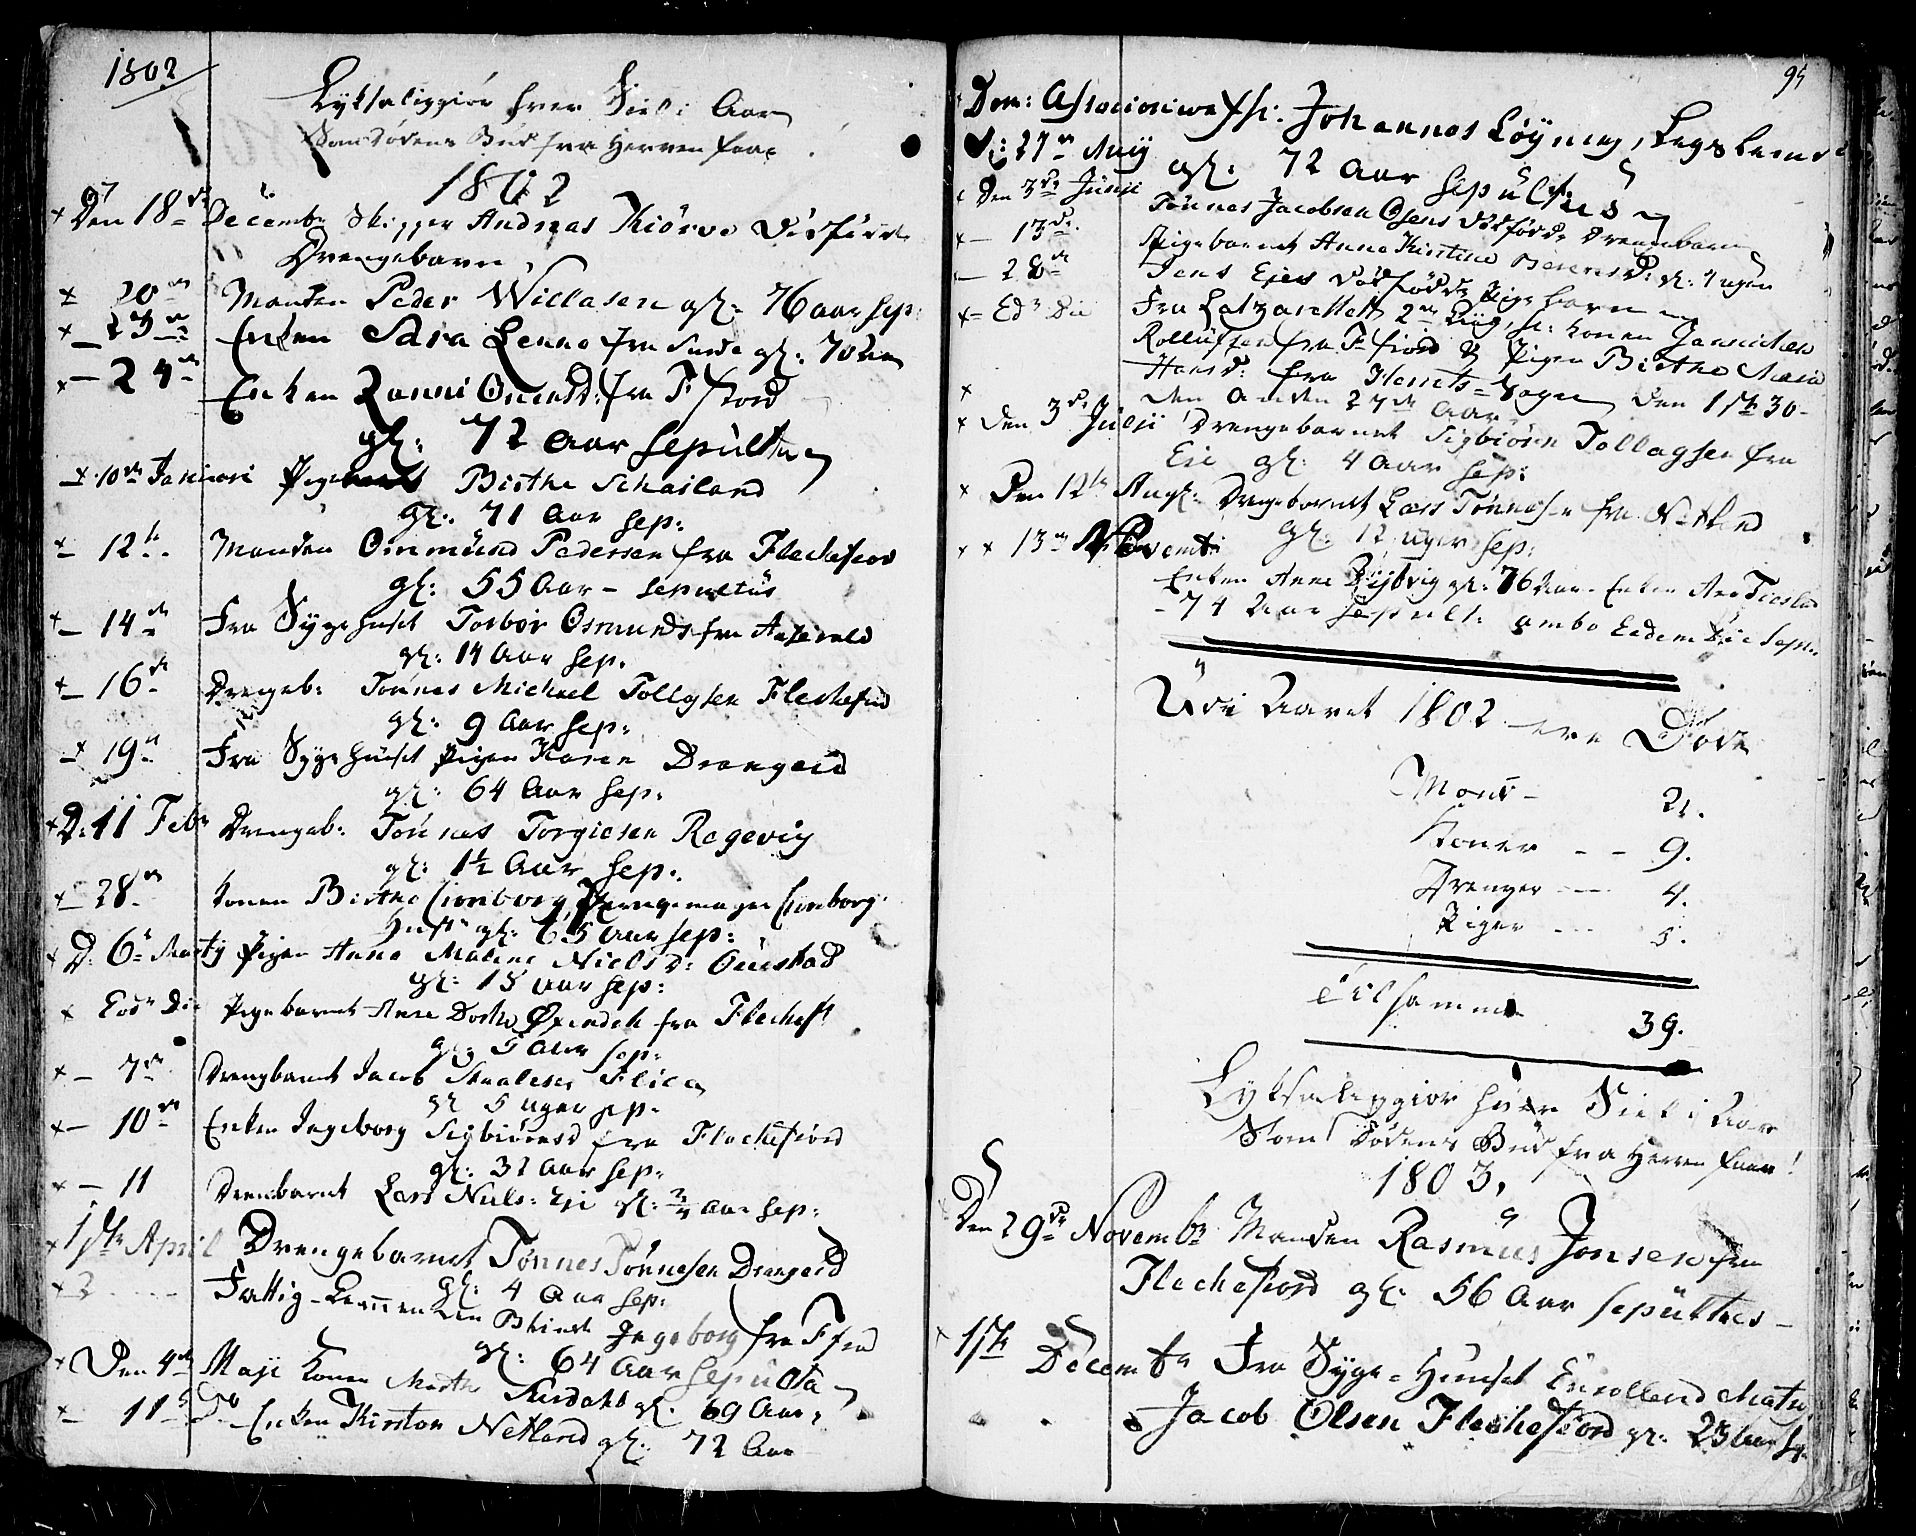 1802
Lyksaliggiör hver Siel i Aar
Som dødens Bud fra Herren faar
1802
Den 18de Decembr Skipper Andreas Kiörvo dödfödte
Drengebarn
20de Manden Peder Willasen gl: 76 aar sep:
- 23de Enken Sara Lenne fra gl: 70 aar
- 24de Enken Ranni Omundsd: fra F fiord
gl: 72 Aar sepulta
10de Januari Birthe Schailand
gl: 71 Aar sep:
- 12te Manden Ommund Pedersen fra Flechefiord
gl: 55 Aar - sepultus
- 14de Fra Sygehuset Torbor Osmunds fra
gl: 14 Aar sep.
- 16de Drengeb: Tönnes Michael Tollagsen Flechefiord
gl: 9 Aar sep:
- 19de Fra Sygehuset Pigen Karen Drangeid
gl: 64 Aar sep.
D: 11 Febr Drengeb: Tönnes Torgiesen Regevig
gl: 1½ Aar sep:
- 28de Konen Birthe
gl: 65 Aar sep:
D: 6te Marty Pigen Anna Malene Niels D: Öiestad
gl: 15 Aar sep:
Eod: Die Pigebarnet Ane Dorthe fra Flechef:
gl: 5 Aar sep:
- 7de Drengbarnet Jacob
gl 5 uger sep.
- 10de Enken Ingeborg Sigbiörnsd fra Flechefiord
gl: 32 Aar sep:
- 11 Drenbarnet Lars Niels: Eie gl: ¾ Aar sep:
1ste April Drengebarnet Tönnes Tönnesen Drangeid
gl: 4 Aar sep:
- 2 Fattig-Lemmen Blinde Ingeborg fra F fiord
gl: 64 Aar sepulta
Den 4de Maji Konen Marthe Sirdahl gl. 69 Aar
- 11te Do Enken Kirsten Netland gl: 72 Aar
95
Dom: Johannes Löyning, Legslem
D: 27de May gl: 72 Aar sepultus
Den 3de Junii Tönnes Jacobsen Osens dödfödde Drengebarn
- 13de Pigebarnet Anne Kirstine Berentsd: gl: 7 uger
- 28de Jens Eies dödfödde Pige barn
- Eod: Die Fra Latzarettet 2de Liig, sc: Konen Jannichen
Rollufsen fra F fiord & Pigen Birthe Maria
Hansd: fra Sogn Den 1ste 30-
den anden 27de Aar
Den 3de Julii Drengebarnet Sigbiörn Tollagsen fra
Eie gl: 4 Aar sep:
Den 12te Aug: Drengebarnet Lars Tönnesen fra Netland
gl: 12 uger sep:
13de Novembr
Enken Anne gl: 76 Aar Enken Ane
- 74 Aar Sepult: ambo Eodem Die Sep:
Udi Aaret 1802 ere Döde
Mend - 21.
Koner - - 9.
Drenger - - 4.
Piger - - - 5.
Tilsammen 39.
Lyksaliggiör hver Siel i Aar
Som Dödens Bud fra Herren faar!
1803.
Den 29de Novembr Manden Rasmus Jonsen fra
Flechefiord gl: 56 Aar sepultus -
1ste Decembr Fra Syge-Huuset Enrollered Matr:
Jacob Olsen Flechefiord gl: 23 Aar sep: